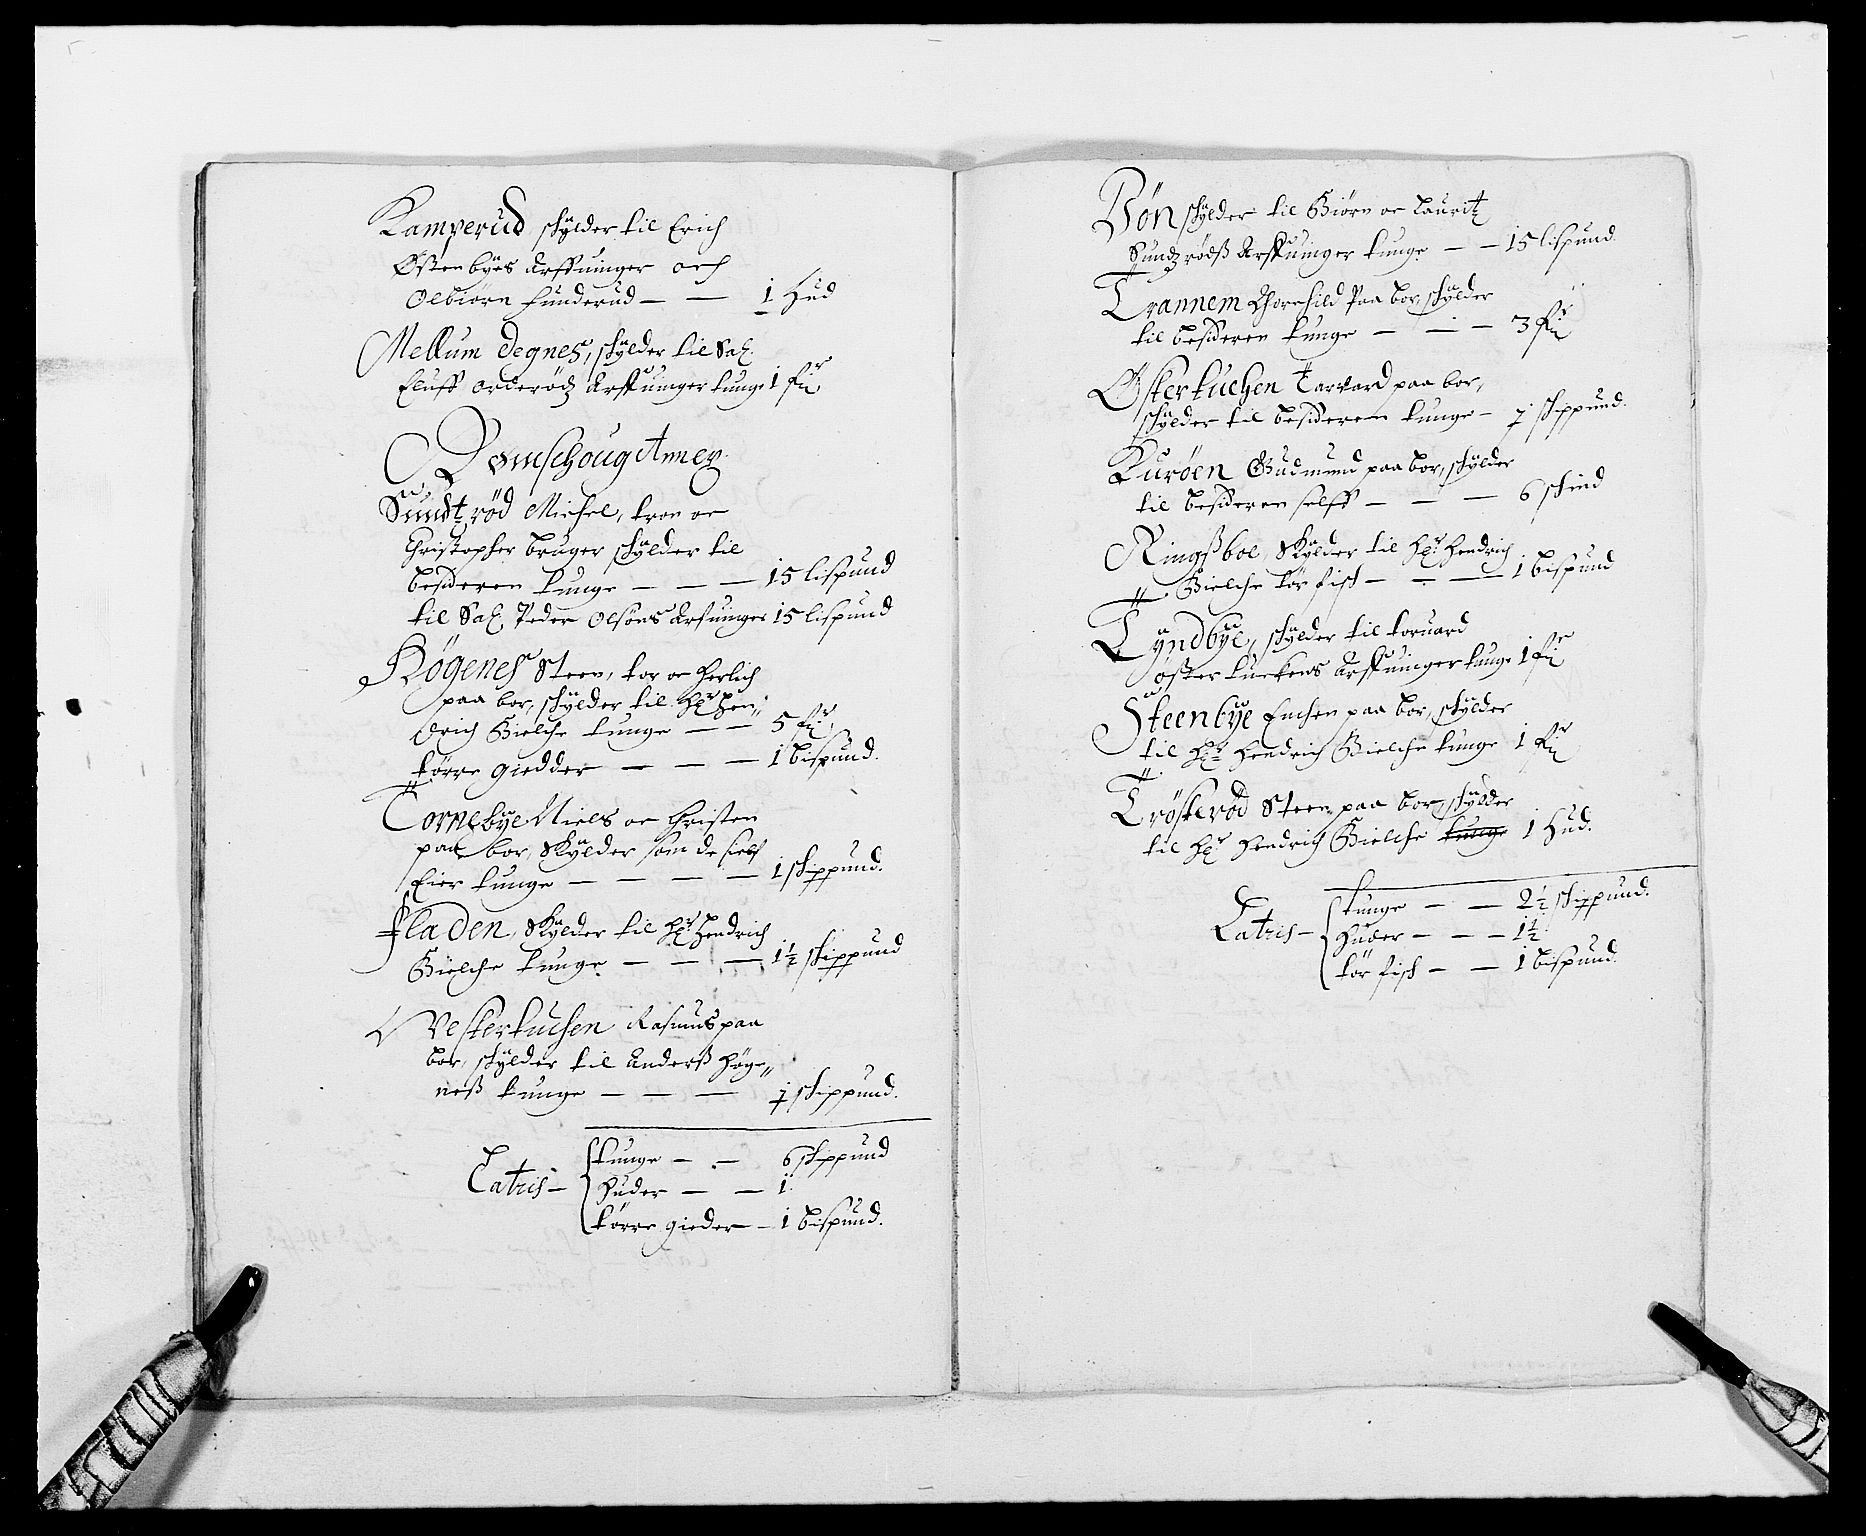 Kamperud schÿlder til Erich
Østenbÿes Arffuinger och
Olbiørn Funderud — — 1 Hud
Mellum Degnes, schÿlder til Sal.
Eluff Orderødz Arffuinger tunge 1 fr
Rømschoug Annex.
Sundtrød Michel, Tron oc
Christopher bruger schÿlder til
besideren tunge — — — 15 lispund
til Sal. Peder Olsøns Arfuinger 15 lispund
Høgenes Steen, Tor oc Herlich
paa bor, schÿlder til Hr Hen„
drich Bielche tunge — — 5 fr
tørre giedder — — — 1 bispund.
Tornebÿe Niels oc Christen
paa bor, Skÿlder som de sielf
Eier tunge — — — — 1 schippund.
Fladen, Skÿlder til Hr Hendrich
Bielche tunge — — — 1½ schippund
Vesterkuchen Rasmus paa
bor, schÿlder til Anderß Høge„
neß tunge — — — 1 schippund.
Latris — tunge — — 6 schippund
Huder — — 1.
tørre gieder — 1 bispund.
Bøn schÿlder til Biørn oc Lauritz
Sundzrødß Arffuinger tunge — — 15 lispund.
Trannem Thorchild Paa bor, schÿlder
til besideren tunge — — — 3 fr
Østerkuchen Tarvard paa bor,
schÿlder til besideren tunge — 1 schippund.
Kurøen Gudmund paa bor, schÿlder
til besideren selff — — — 6 schind
Ringßboe, Skÿlder til Hr Hendrich
Bielche tør fisch — — — 1 bispund
Tÿndbÿe, schÿlder til Toruard
Østerkuckens Arffuinger tunge 1 fr
Steenbÿe Enchen paa bor, schÿlder
til Hr Hendrich Bielche tunge 1 fr
Trøsterød Steen paa bor, schÿlder
til Hr Hendrich Bielche tunge 1 Hud.
Latris — tunge — — 2½ schippund.
Huder — — — 1½
tør fisch — — 1 bispund.